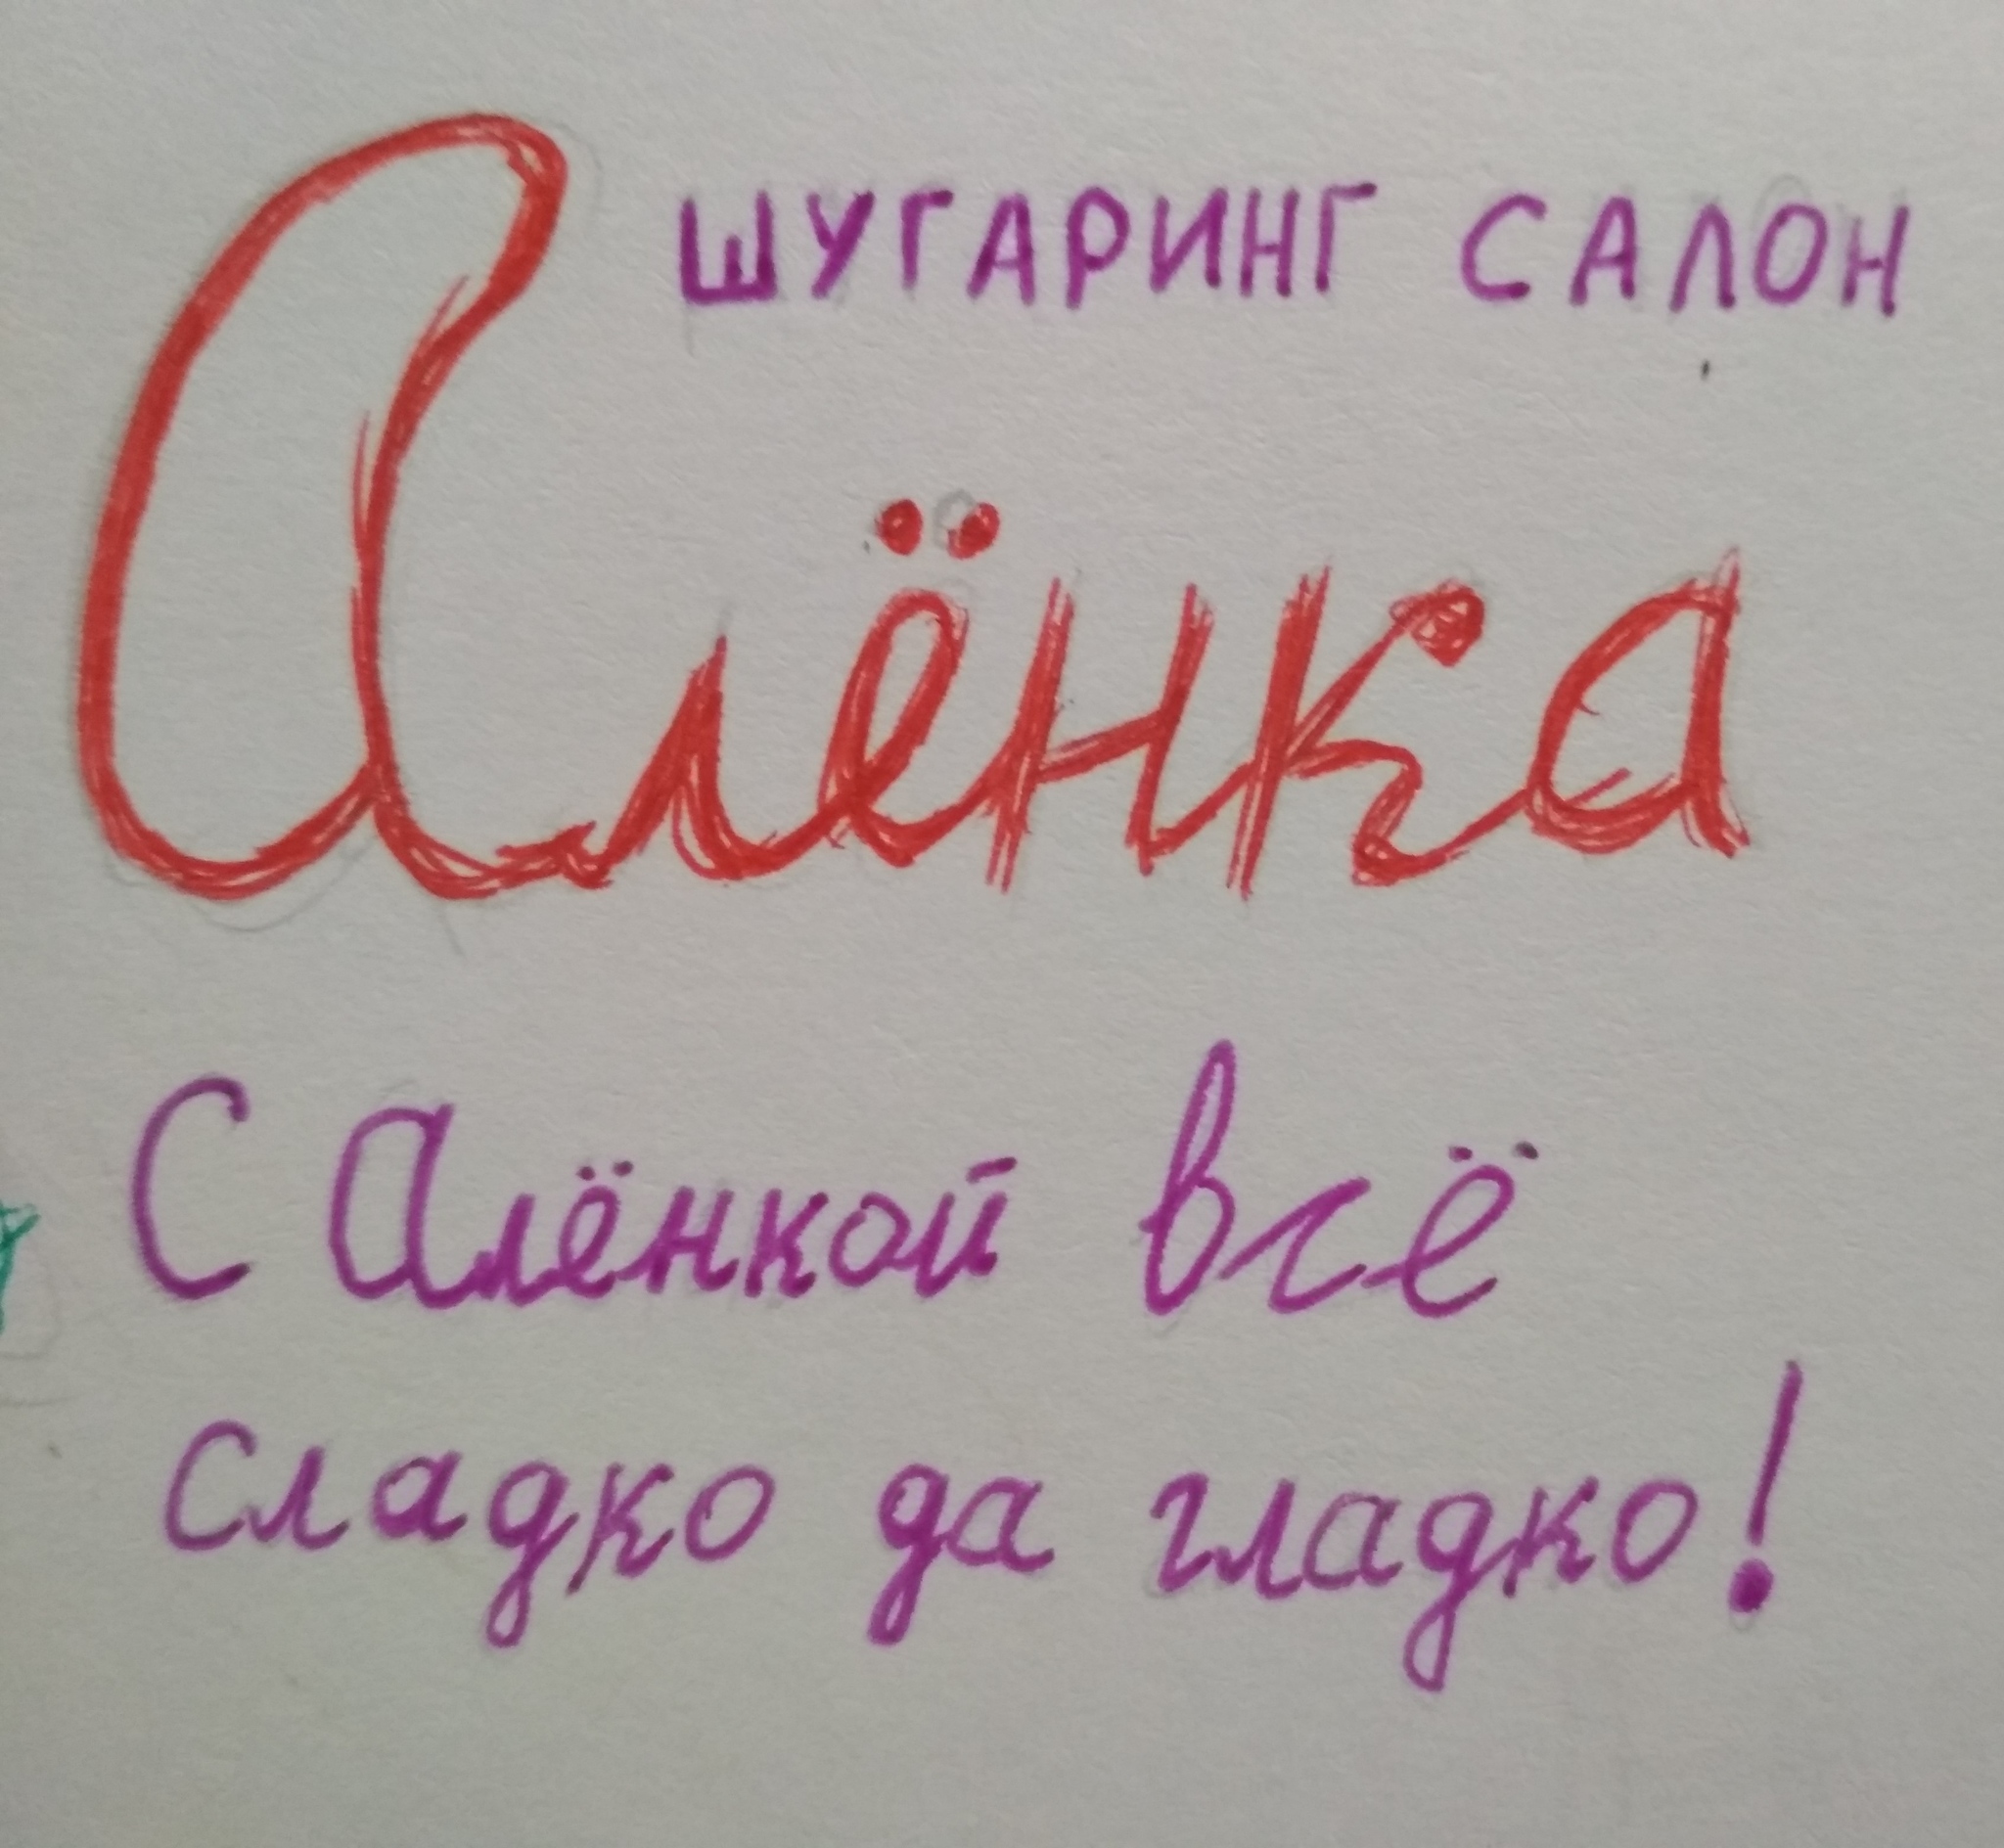 ШУГАРИНГ САЛОН
Алёнка
С Алёнкой всё
сладко да гладко!